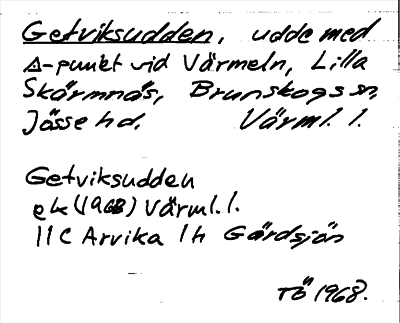 Getviksudden, udde med
△-punkt vid Värmeln, Lilla
Skärmnäs, Brunskogs sn,
Jösse hd. Värml. l.
Getviksudden
ek (1968) Värml. l.
11 C Arvika 1h Gärdsjön
TÖ 1968.